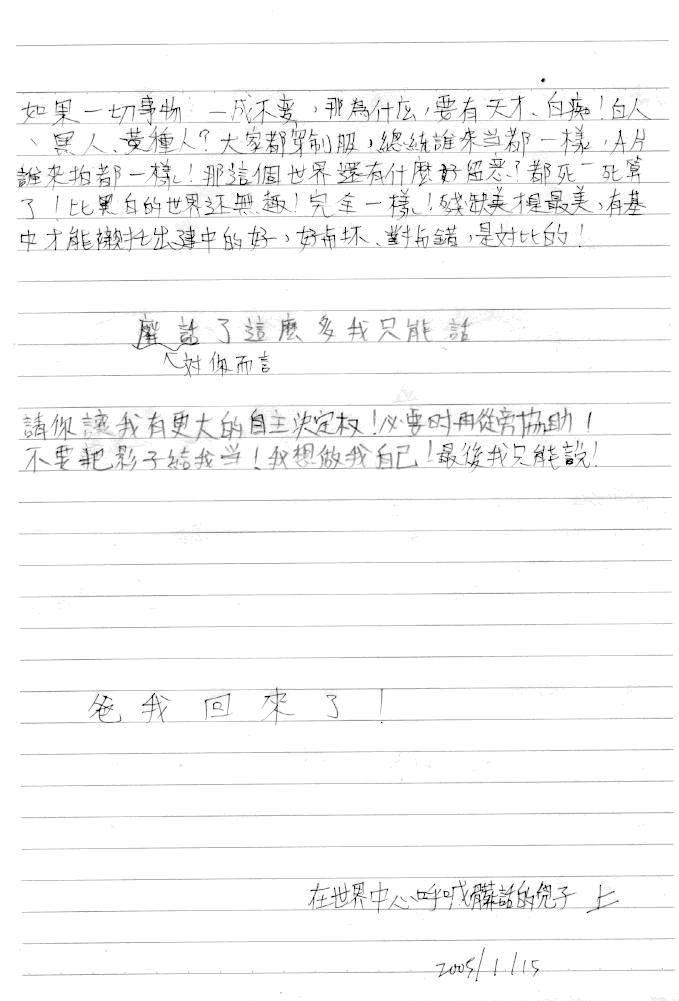 如果一切事物 一成不變，那為什么，要有天才、白痴！白人
、黑人、黃種人？大家都穿制服，總統誰來当都一樣，A片
誰來拍都一樣！那這個世界還有什麼好留恋？都死一死算
了！比黑白的世界还無趣！完全一樣！殘缺美才是最美，有基
中才能襯托出建中的好，好与坏、對与錯，是対比的！
廢話了這麼多我只能話
対你而言
請你讓我有更大的自主決定权！必要时再從旁協助！
不要把影子給我当！我想做我自己！最後我只能說！
爸我回來了！
在世界中心呼喊髒話的兒子 上
2005/1/15